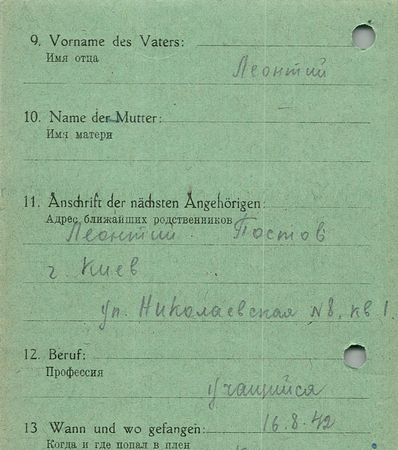 9. Vorname des Vaters:
Имя отца
Леонтий
10. Name der Mutter:
Имя матери
11. Anschrift der nächsten Angehörigen:
Адрес ближайших родственников
Леонтий Постов
г. Киев
ул. Николаевская N8, кв 1.
12. Beruf:
Профессия
учащийся
13 Wann und wo gefangen:
16.8.42
Когда и где попал в плен